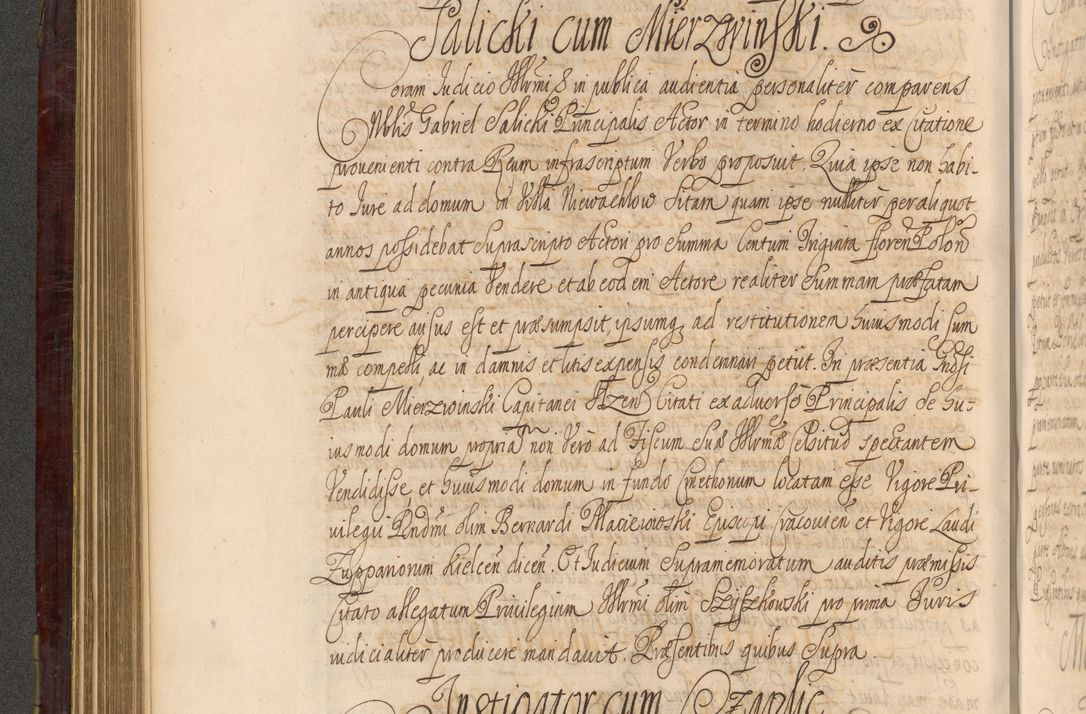 Salicki cum Mierzwinski.
Coram Judicio Illrmi & in publica audientia personaliter comparens
Nblis Gabriel Salicki Principalis Actor in termino hodierno ex Citatione
provenienti contra Reum infrascriptum Verbo proposuit. Quia ipse non habi-
to Jure ad domum in Villa Niewachlow sitam quam ipse nulliter per aliquot
annos possidebat suprascripto Actori pro summa Centum Triginta floren Polon
in antiqua pecunia Vendere et ab eodem Actore realiter summam præfatam
percipere ausus est et præsumpsit, ipsumq ad restitutionem huiusmodi sum
mæ compelli, ac in damnis et litis expensis condemnari petiit. In præsentia Gnosi
Pauli Mierzwinski Capitanei Citati ex adverso Principalis se hu-
iusmodi domum propriam non Vero ad Fiscum Suæ Illrmæ Celsitud spectantem
Vendidisse, et huiusmodi domum in fundo Cmethonum locatam esse Vigore Pri-
vilegii Rndmi olim Bernardi Macieiowski Episcopi Cracovien et Vigore Laudi
Zuppariorum Kielcen dicen. Et Judicium Supramemoratum auditis præmissis
Citato allegatum Privilegium Illrmi olim Szyszkowski pro prima Juris
iudicialiter producere mandavit. Præsentibus quibus Supra.
Instigator cum Czaplic